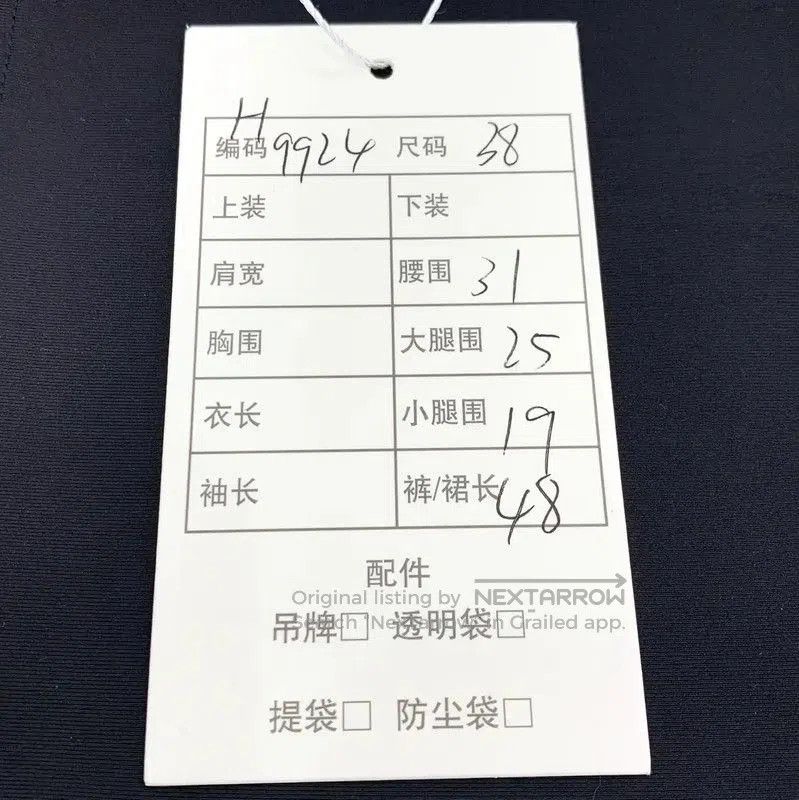 编码 H9924 尺码 38
上装 下装
肩宽 腰围 31
胸围 大腿围 25
衣长 小腿围 19
袖长 裤/裙长 48
配件
Original listing by NEXTARROW
吊牌□ 透明袋□
Search "Nextarrow" in Grailed app.
提袋□ 防尘袋□